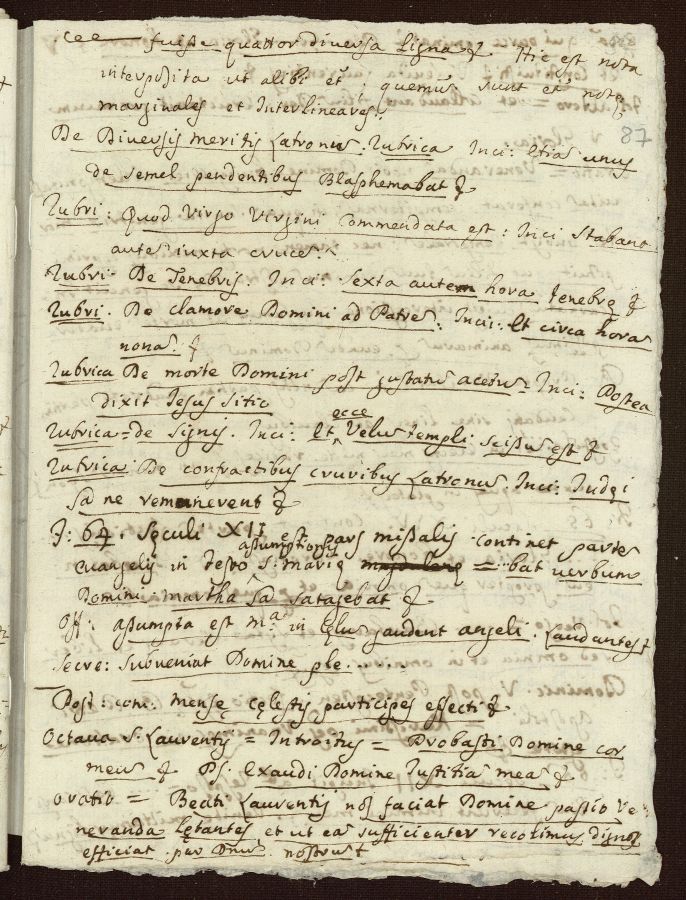 cee fuisse quattor diversa ligna &. Hic est nota
interposita ut alibi et; quemus sunt et notę
marginales et Interlineares.
87
De Diversis meritis Latronus. Rubrica Inci: Etiā unus
de semel pendentibus Blasphemabat &
Rubri: Quod Virgo Virgini Commendata est: Inci Stabant
autē iuxta crucē.
Rubri. De Tenebris. Inci: Sexta autem hora tenebrę &
Rubri. De clamore Domini ad Patrē. Inci: Et circa horā
nonā. &
Rubrica De morte Domini post gustatū acetū = Inci: Postea
dixit Jesus sitio
Rubrica = de signis. Inci: Et ecce Velū templi scissū est &
Rubrica De confractibus cruribus Latronū. Inci: Iudęi
sā ne remanerent &
f: 64. Sęculi XII est pars missalis continet partē
euangelij in festo assumptionis s. marię = ..bat uerbum
Domini martha sā satagebat &
Off: assumpta est mᵃ in cęlū gaudent angeli. Laudantes &
Secre: subueniat Domine ple......
Post: com. mensę cęlestis participes effecti &
Octaua S. Laurentij = Introitus = Probasti Domine cor
meū & Ps. Exaudi Domine Iustitiā meā &
Oratio = Beati Laurentij nos faciat Domine passio ve
neranda lętantes et ut eā sufficienter recolimus dignos
efficiat. per Dnum nostrum &